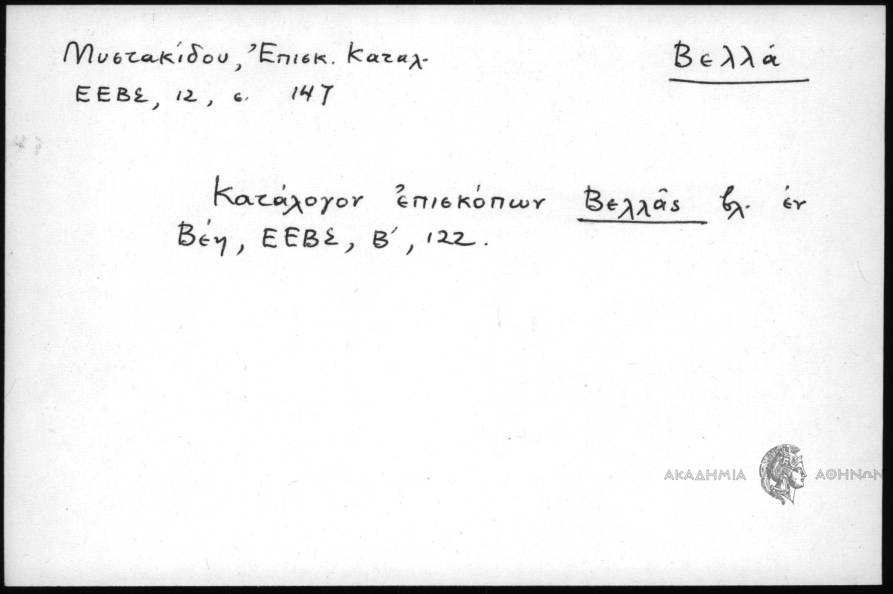 Μυστακίδου, Ἐπισκ. Καταλ.
Βελλά
ΕΕΒΣ, 12, σ. 147
Κατάλογον ἐπισκόπων Βελλᾶς βλ. ἐν
Βέη, ΕΕΒΣ, Β΄, 122.
ΑΚΑΔΗΜΙΑ ΑΘΗΝΩΝ